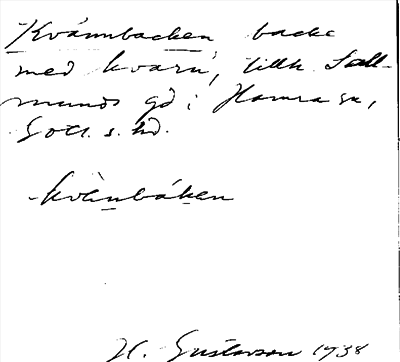 Kvännbacken, backe
med kvarn, tillh. Sall-
munds gd i Hamra sn,
Gotl. s. hd.
kvänbáken
H. Gustavson 1938